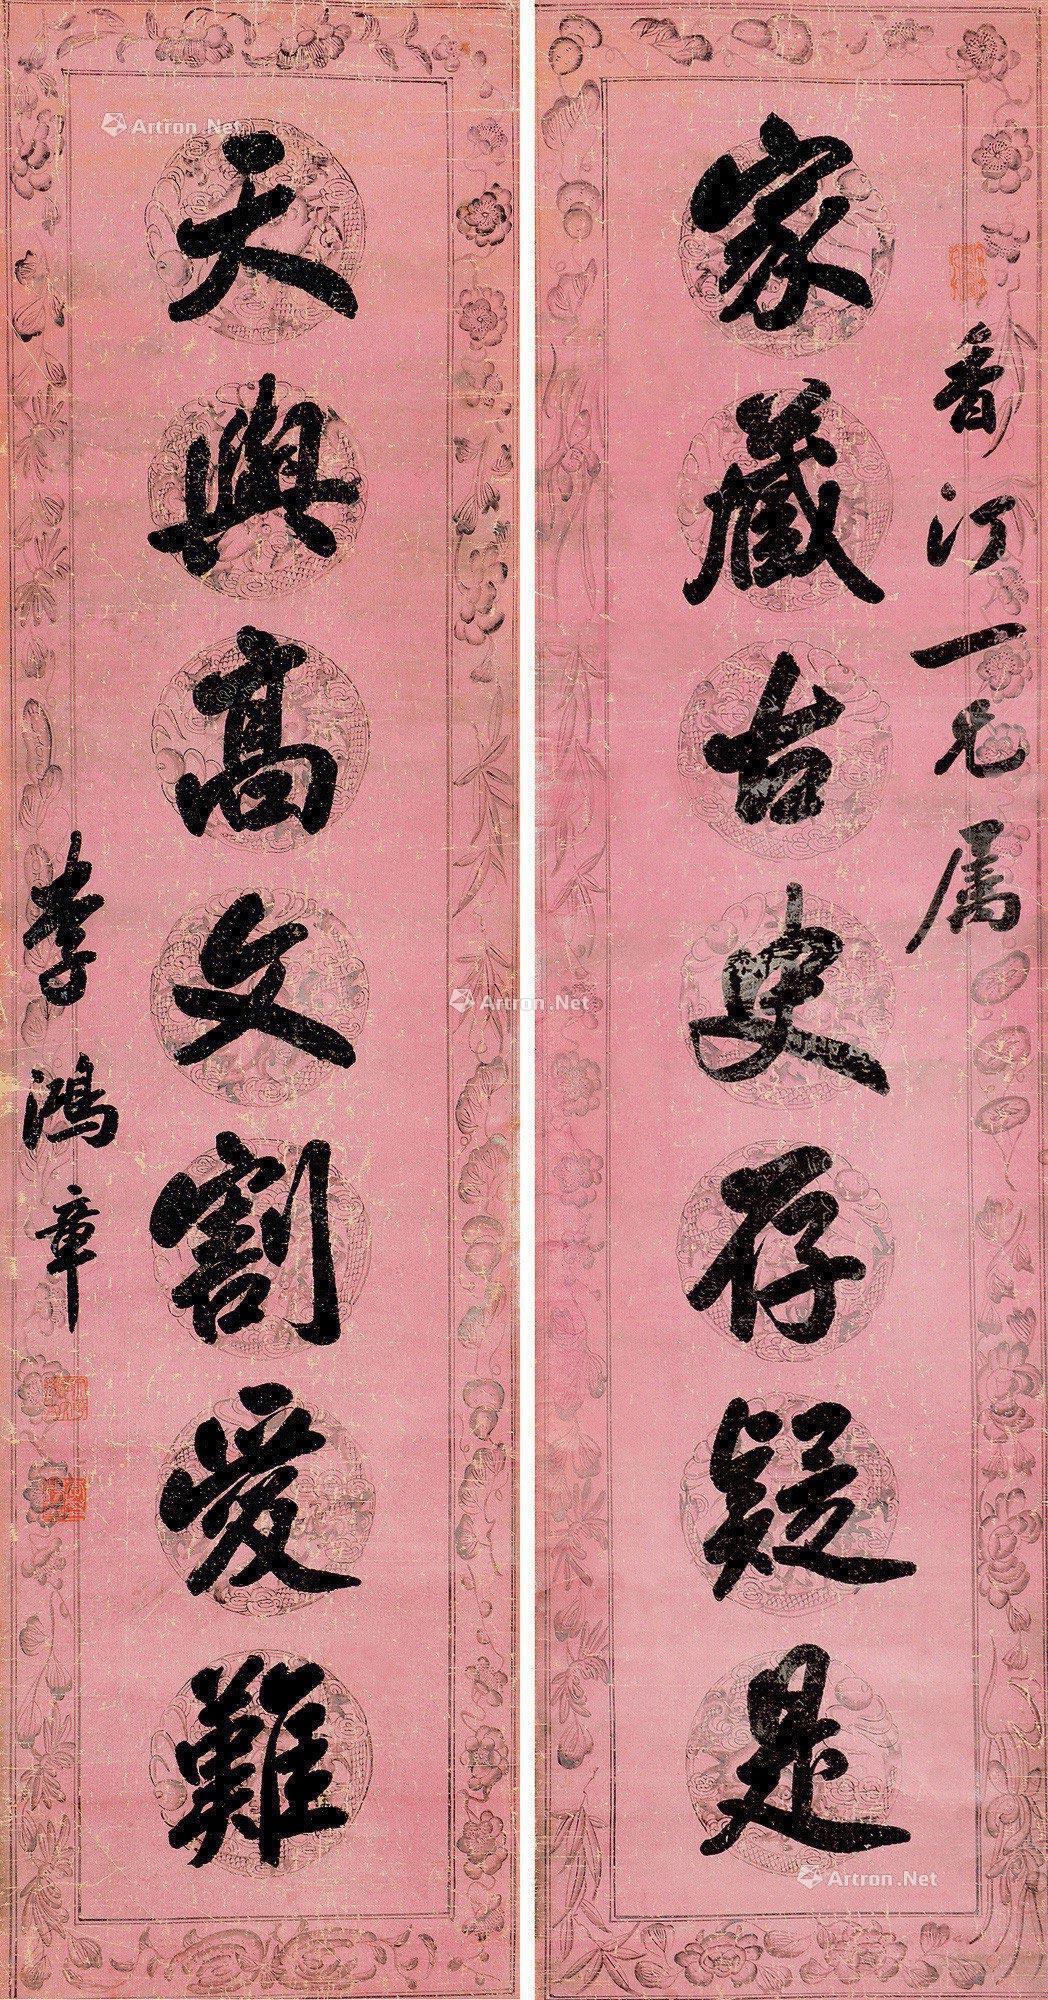 香汀一兄属
家藏古史存疑是
天與高文割愛難
李鴻章
Artron.Net
Artron.Net
Artron.Net